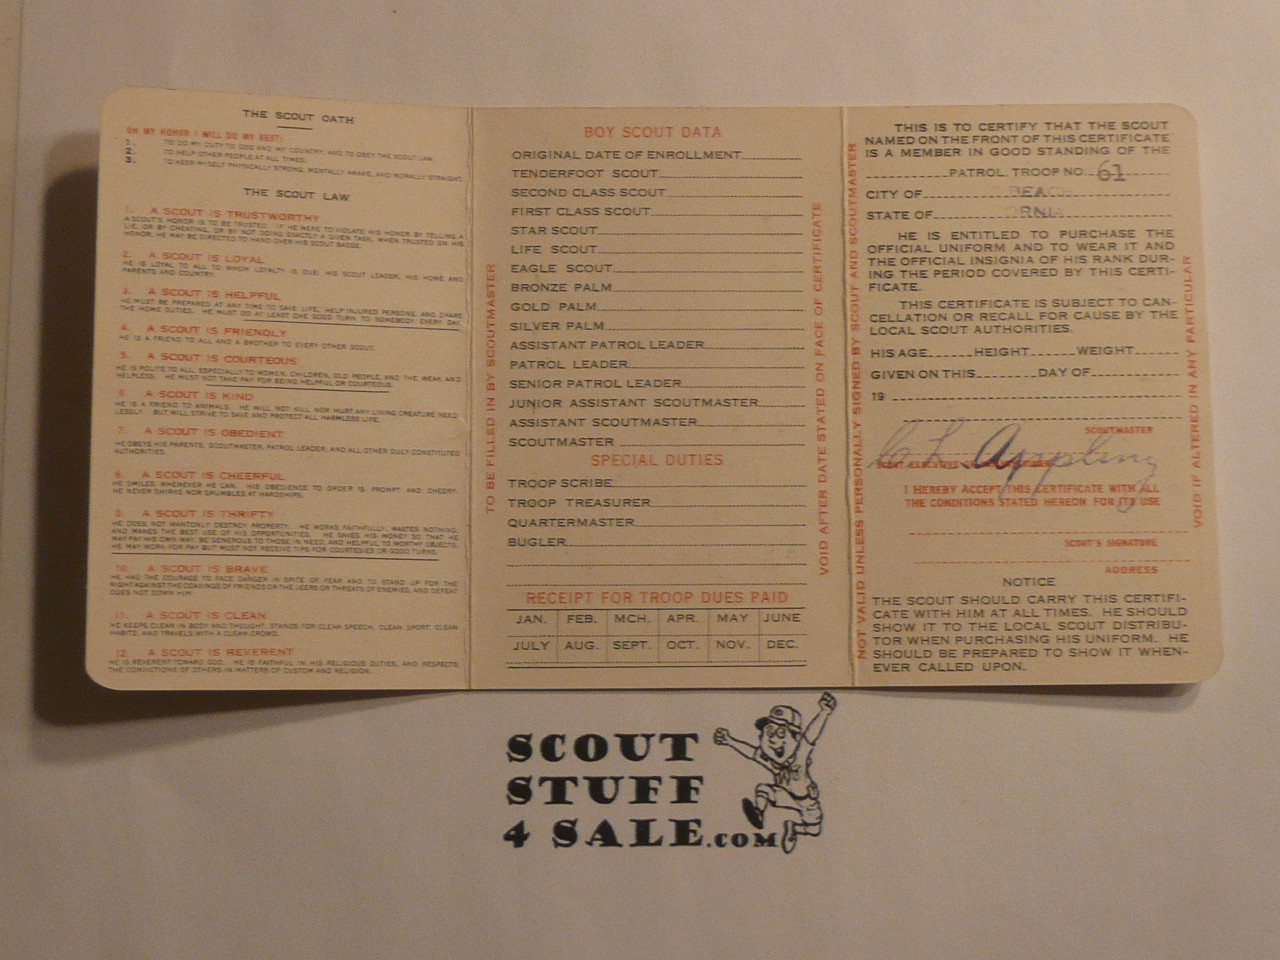 THE SCOUT OATH
ON MY HONOR I WILL DO MY BEST:
1. TO DO MY DUTY TO GOD AND MY COUNTRY, AND TO OBEY THE SCOUT LAW.
2. TO HELP OTHER PEOPLE AT ALL TIMES.
3. TO KEEP MYSELF PHYSICALLY STRONG, MENTALLY AWAKE, AND MORALLY STRAIGHT.
THE SCOUT LAW
1. A SCOUT IS TRUSTWORTHY
A SCOUT'S HONOR IS TO BE TRUSTED. IF HE WERE TO VIOLATE HIS HONOR BY TELLING A
LIE, OR BY CHEATING, OR BY NOT DOING EXACTLY A GIVEN TASK, WHEN TRUSTED ON HIS
HONOR, HE MAY BE DIRECTED TO HAND OVER HIS SCOUT BADGE.
2. A SCOUT IS LOYAL
HE IS LOYAL TO ALL TO WHOM LOYALTY IS DUE, HIS SCOUT LEADER, HIS HOME AND
PARENTS AND COUNTRY.
3. A SCOUT IS HELPFUL
HE MUST BE PREPARED AT ANY TIME TO SAVE LIFE, HELP INJURED PERSONS, AND SHARE
THE HOME DUTIES. HE MUST DO AT LEAST ONE GOOD TURN TO SOMEBODY EVERY DAY.
4. A SCOUT IS FRIENDLY
HE IS A FRIEND TO ALL AND A BROTHER TO EVERY OTHER SCOUT.
5. A SCOUT IS COURTEOUS
HE IS POLITE TO ALL, ESPECIALLY TO WOMEN, CHILDREN, OLD PEOPLE, AND THE WEAK AND
HELPLESS. HE MUST NOT TAKE PAY FOR BEING HELPFUL OR COURTEOUS.
6. A SCOUT IS KIND
HE IS A FRIEND TO ANIMALS. HE WILL NOT KILL NOR HURT ANY LIVING CREATURE NEED-
LESSLY, BUT WILL STRIVE TO SAVE AND PROTECT ALL HARMLESS LIFE.
7. A SCOUT IS OBEDIENT
HE OBEYS HIS PARENTS, SCOUTMASTER, PATROL LEADER, AND ALL OTHER DULY CONSTITUTED
AUTHORITIES.
8. A SCOUT IS CHEERFUL
HE SMILES WHENEVER HE CAN. HIS OBEDIENCE TO ORDER IS PROMPT AND CHEERY.
HE NEVER SHIRKS NOR GRUMBLES AT HARDSHIPS.
9. A SCOUT IS THRIFTY
HE DOES NOT WANTONLY DESTROY PROPERTY. HE WORKS FAITHFULLY, WASTES NOTHING,
AND MAKES THE BEST USE OF HIS OPPORTUNITIES. HE SAVES HIS MONEY SO THAT HE
MAY PAY HIS OWN WAY, BE GENEROUS TO THOSE IN NEED, AND HELPFUL TO WORTHY OBJECTS.
HE MAY WORK FOR PAY BUT MUST NOT RECEIVE TIPS FOR COURTESIES OR GOOD TURNS.
10. A SCOUT IS BRAVE
HE HAS THE COURAGE TO FACE DANGER IN SPITE OF FEAR AND TO STAND UP FOR THE
RIGHT AGAINST THE COAXINGS OF FRIENDS OR THE JEERS OR THREATS OF ENEMIES, AND DEFEAT
DOES NOT DOWN HIM.
11. A SCOUT IS CLEAN
HE KEEPS CLEAN IN BODY AND THOUGHT, STANDS FOR CLEAN SPEECH, CLEAN SPORT, CLEAN
HABITS, AND TRAVELS WITH A CLEAN CROWD.
12. A SCOUT IS REVERENT
HE IS REVERENT TOWARD GOD. HE IS FAITHFUL IN HIS RELIGIOUS DUTIES, AND RESPECTS
THE CONVICTIONS OF OTHERS IN MATTERS OF CUSTOM AND RELIGION.
TO BE FILLED IN BY SCOUTMASTER
BOY SCOUT DATA
ORIGINAL DATE OF ENROLLMENT
TENDERFOOT SCOUT
SECOND CLASS SCOUT
FIRST CLASS SCOUT
STAR SCOUT
LIFE SCOUT
EAGLE SCOUT
BRONZE PALM
GOLD PALM
SILVER PALM
ASSISTANT PATROL LEADER
PATROL LEADER
SENIOR PATROL LEADER
JUNIOR ASSISTANT SCOUTMASTER
ASSISTANT SCOUTMASTER
SCOUTMASTER
SPECIAL DUTIES
TROOP SCRIBE
TROOP TREASURER
QUARTERMASTER
BUGLER
RECEIPT FOR TROOP DUES PAID
JAN. FEB. MCH. APR. MAY JUNE
JULY AUG. SEPT. OCT. NOV. DEC.
VOID AFTER DATE STATED ON FACE OF CERTIFICATE
NOT VALID UNLESS PERSONALLY SIGNED BY SCOUT AND SCOUTMASTER
THIS IS TO CERTIFY THAT THE SCOUT
NAMED ON THE FRONT OF THIS CERTIFICATE
IS A MEMBER IN GOOD STANDING OF THE
PATROL TROOP NO. 61
CITY OF BEACH
STATE OF RNIA
HE IS ENTITLED TO PURCHASE THE
OFFICIAL UNIFORM AND TO WEAR IT AND
THE OFFICIAL INSIGNIA OF HIS RANK DUR-
ING THE PERIOD COVERED BY THIS CERTI-
FICATE.
THIS CERTIFICATE IS SUBJECT TO CAN-
CELLATION OR RECALL FOR CAUSE BY THE
LOCAL SCOUT AUTHORITIES.
HIS AGE HEIGHT WEIGHT
GIVEN ON THIS DAY OF
19
SCOUTMASTER
C L Appling
SCOUT EXECUTIVE
I HEREBY ACCEPT THIS CERTIFICATE WITH ALL
THE CONDITIONS STATED HEREON FOR ITS USE
SCOUT'S SIGNATURE
ADDRESS
NOTICE
THE SCOUT SHOULD CARRY THIS CERTIFI-
CATE WITH HIM AT ALL TIMES. HE SHOULD
SHOW IT TO THE LOCAL SCOUT DISTRIBU-
TOR WHEN PURCHASING HIS UNIFORM. HE
SHOULD BE PREPARED TO SHOW IT WHEN-
EVER CALLED UPON.
VOID IF ALTERED IN ANY PARTICULAR
SCOUT
STUFF
4 SALE.COM